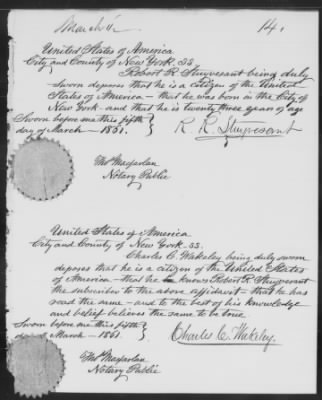 March 11
141
United States of America
City and County of New York ss.
Robert R. Stuyvesant being duly
sworn deposes that he is a citizen of the United
States of America - that he was born in the City of
New York - and that he is twenty three years of age
Sworn before me this fifth
day of March - 1851. }
R. R. Stuyvesant
Thos Macfarlan
Notary Public
United States of America
City and County of New York - ss.
Charles C. Wakeley being duly sworn
deposes that he is a citizen of the United States
of America - that he knows Robert R. Stuyvesant
the subscriber to the above affidavit - that he has
read the same - and to the best of his knowledge
and belief believes the same to be true
Sworn before me this fifth
day of March - 1851. }
Charles C. Wakeley.
Thos Macfarlan
Notary Public